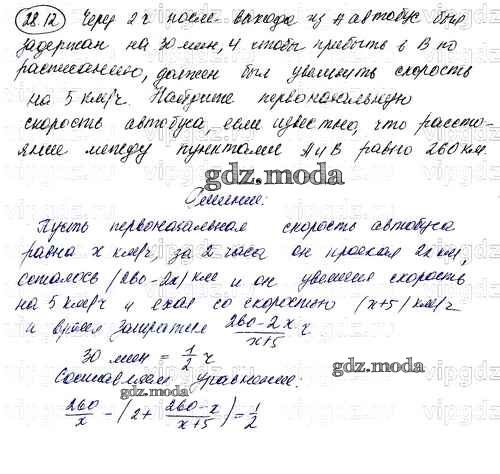 28.12 Через 2 ч после выхода из А автобус был
задержан на 30 мин, и чтобы прибыть в В по
расписанию, должен был увеличить скорость
на 5 км/ч. Найдите первоначальную
скорость автобуса, если известно, что рассто-
яние между пунктами А и В равно 260 км.
gdz.moda
Решение:
Пусть первоначальная скорость автобуса
равна х км/ч, за 2 часа он проехал 2х км,
осталось (260-2х) км и он увеличил скорость
на 5 км/ч и ехал со скоростью (х+5) км/ч
и время затратил 260-2х/х+5 ч
30 мин = 1/2 ч
gdz.moda
Составляем уравнение:
gdz.moda
260/х - (2 + 260-х/х+5) = 1/2